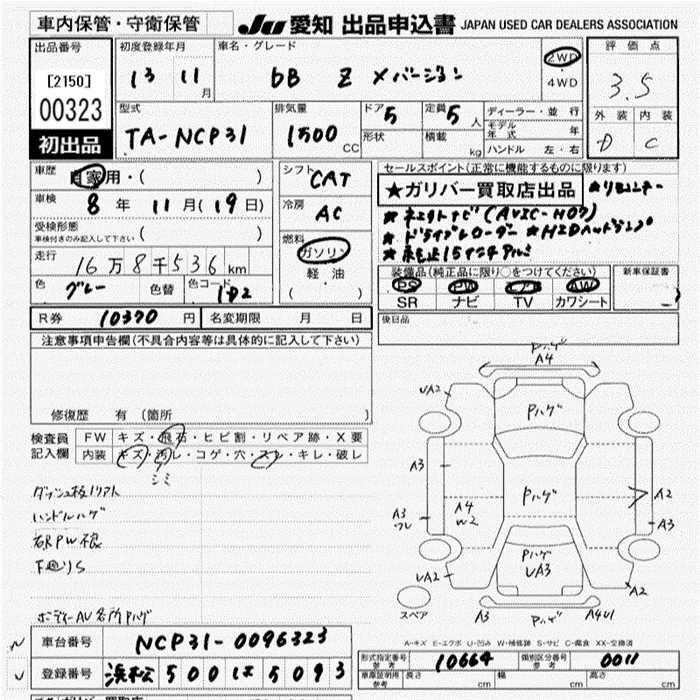 車内保管・守衛保管
JU 愛知 出品申込書 JAPAN USED CAR DEALERS ASSOCIATION
出品番号
[2150]
00323
初出品
初度登録年月
13 11月
車名・グレード
bB Z Xバージョン
2WD
・
4WD
評価点
3.5
外装 内装
D C
型式
TA-NCP31
排気量
1500 CC
ドア 5
形状
定員 5人
積載 kg
ディーラー・並行
モデル年式 年
ハンドル 左・右
車歴 自家用・( )
車検 8年 11月(19日)
受検形態
車検付きのみ記入して下さい ( )
走行 16万8千536km
色 グレー 色替 色コード 1D2
シフト CAT
冷房 AC
燃料
ガソリン
軽油
( )
セールスポイント(正常に機能するものに限ります)
★ガリバー買取店出品 ★リモコンキー
★ 社外ナビ(AVIC-H07)
★ ドライブレコーダー ★HIDヘッドランプ
★ 純正15インチアルミ
装備品(純正品に限り○をつけてください)
PS PW エアB AW
SR ナビ TV カワシート
新車保証書
後日品
R券 10370円 名変期限 月 日
注意事項申告欄(不具合内容等は具体的に記入して下さい)
修復歴 有 (箇所 )
検査員記入欄
FW キズ・飛石・ヒビ割・リペア跡・X要
内装 キズ・汚レ・コゲ・穴・スレ・キレ・破レ
シミ
ハンドルハゲ
下廻りS
ボディーAU各所Pハゲ
Pハゲ
A4
UA2
Pハゲ
A3
A3
ワレ
A4
W2
Pハゲ
A2
A3
Pハゲ
UA3
UA2
A2
スペア
A3
Pハゲ
A4U1
A-キズ E-エクボ U-凹み W-補修跡 S-サビ C-腐食 XX-交換済
車台番号 NCP31-0096323
登録番号 浜松 500 ほ 5093
形式指定番号 参考 10664 類別区分番号 参考 0011
車庫証明用 参考 長さ cm 幅 cm 高さ cm